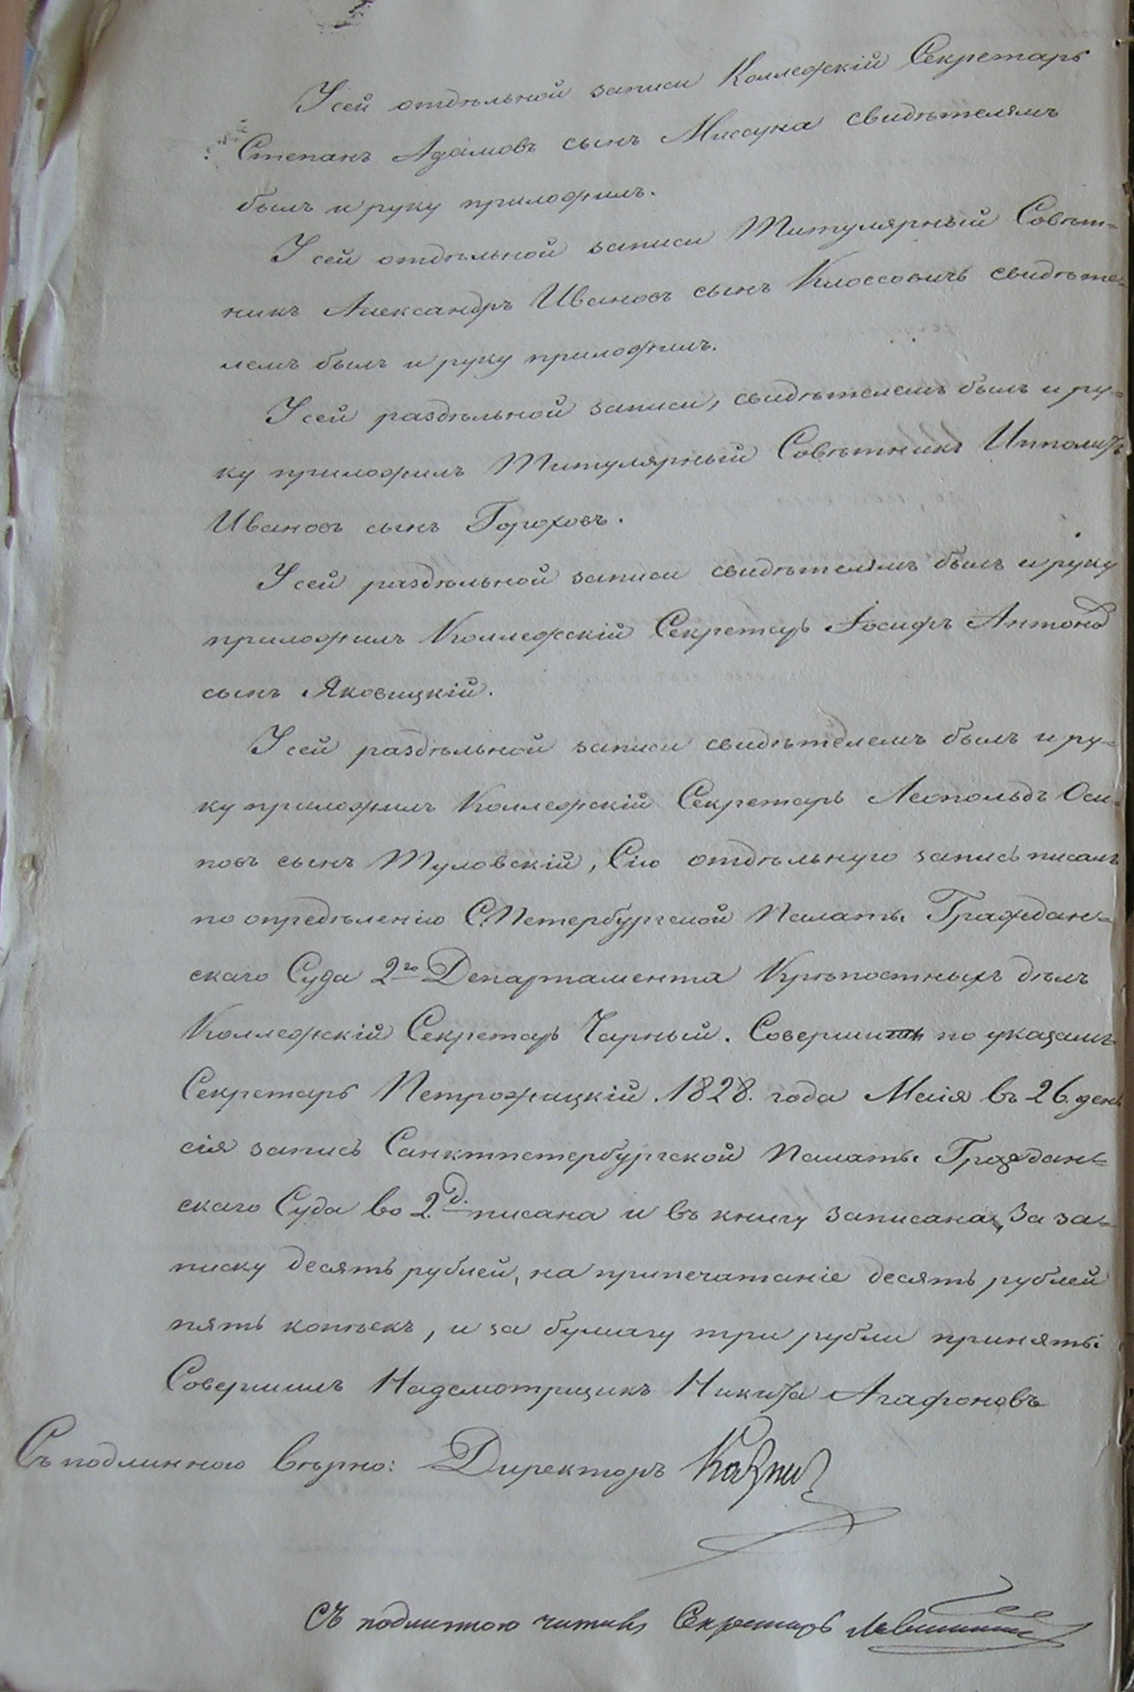 У сей отдѣльной записи Коллежскій Секретарь
Степанъ Адамовъ сынъ Миссуна свидѣтелемъ
былъ и руку приложилъ.
У сей отдѣльной записи Титулярный Совѣт-
никъ Александръ Ивановъ сынъ Клоссовичъ свидѣте-
лемъ былъ и руку приложилъ.
У сей раздѣльной записи, свидѣтелемъ былъ и ру-
ку приложилъ Титулярный Совѣтникъ Ипполитъ
Ивановъ сынъ Гороховъ.
У сей раздѣльной записи свидѣтелемъ былъ и руку
приложилъ Коллежскій Секретарь Іосифъ Антоновъ
сынъ Яковицкій.
У сей раздѣльной записи свидѣтелемъ былъ и ру-
ку приложилъ Коллежскій Секретарь Леопольдъ Оси-
повъ сынъ Туловскій, Сію отдѣльную запись писалъ
по опредѣленію С.Петербургской Палаты Граждан-
скаго Суда 2го Департамента Крѣпостныхъ дѣлъ
Коллежскій Секретарь Чарный. Совершить по указамъ
Секретарь Петрожицкій. 1828. года Маія въ 26. день
сія запись Санктпетербургской Палаты Граждан-
скаго Суда во 2.Д. писана и въ книгу записана, За за-
писку десять рублей, на припечатаніе десять рублей
пять копѣекъ, и за бумагу три рубли приняты
Совершилъ Надсмотрщикъ Никита Агафоновъ
Съ подлинною вѣрно: Директоръ
Съ подлинною читалъ Секретарь